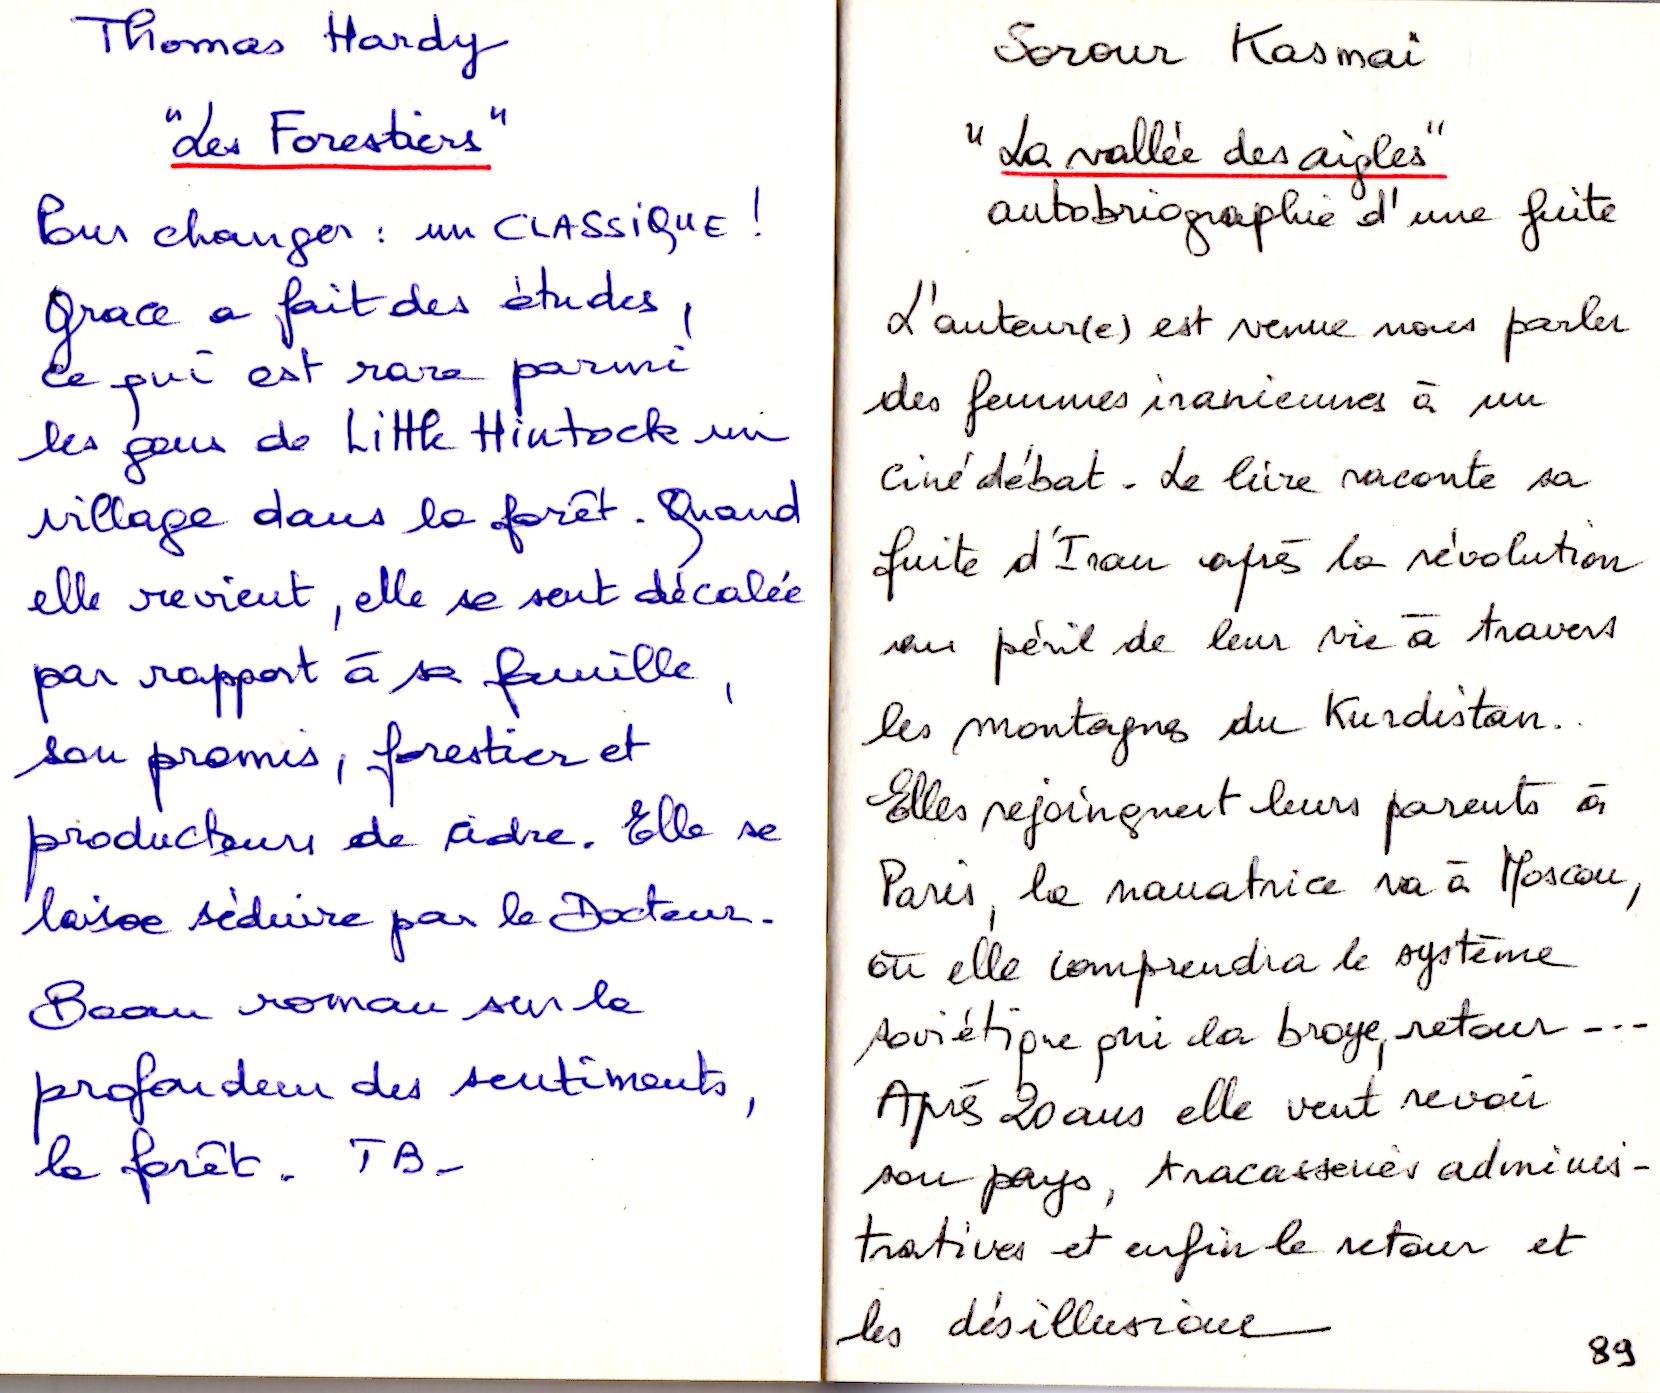 Thomas Hardy
"Les Forestiers"
Pour changer : un CLASSiQUE !
Grace a fait des études,
ce qui est rare parmi
les gens de Little Hintock un
village dans la forêt. Quand
elle revient, elle se sent décalée
par rapport à sa famille,
son promis, forestier et
producteurs de cidre. Elle se
laisse séduire par le Docteur.
Beau roman sur la
profondeur des sentiments,
la forêt. TB_
Sorour Kasmaï
"La vallée des aigles"
autobriographie d'une fuite
L'auteur(e) est venue nous parler
des femmes iraniennes à un
ciné débat. Le livre raconte sa
fuite d'Iran après la révolution
au péril de leur vie à travers
les montagnes du Kurdistan..
Elles rejoingnent leurs parents à
Paris, la narratrice va à Moscou,
où elle comprendra le système
soviétique qui la broye, retour ---
Après 20 ans elle veut revoir
son pays, tracasseries adminis-
tratives et enfin le retour et
les désillusions
89